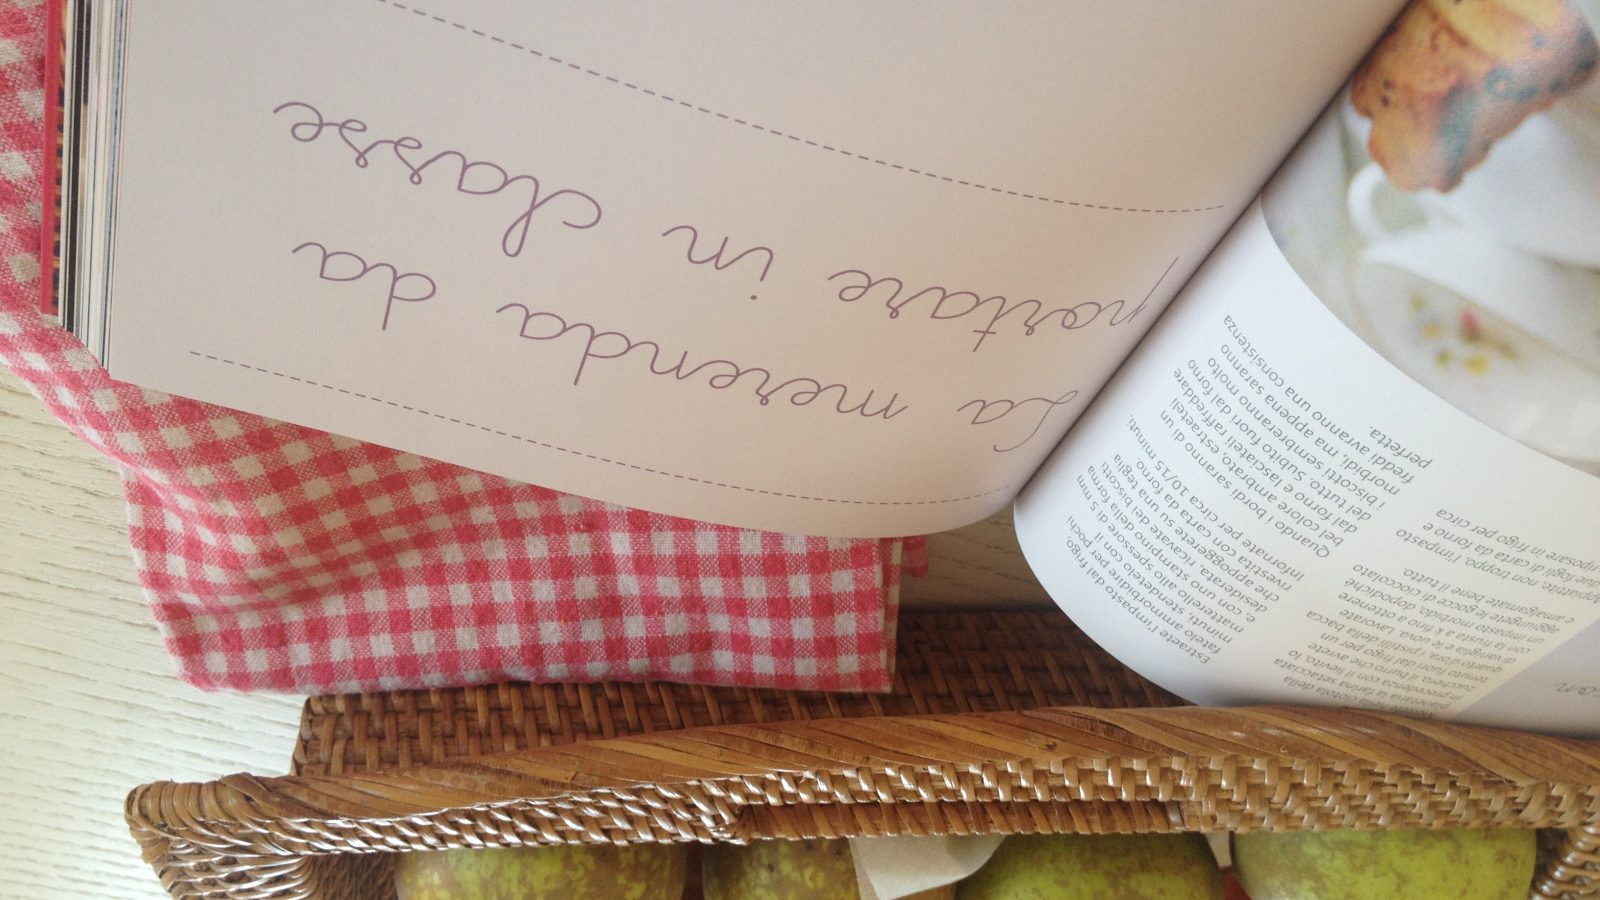 La merenda da
portare in classe
nella ciotola della
setacciata
con il lievito, lo
il burro che avrete
tenuto fuori dal frigo per un
quarto d'ora, i pistilli della bacca
di vaniglia e le uova. Lavorate
con la frusta a k fino a ottenere
un impasto morbido, dopodiché
aggiungete le gocce di cioccolato
e amalgamate bene il tutto.
non troppo, l'impasto
due fogli di carta da forno e
in frigo per circa
Estraete l'impasto dal frigo,
fatelo ammorbidire per pochi
minuti, stendetelo con il
matterello allo spessore di 5 mm
e, con uno stampino della forma
desiderata, ricavate dei biscotti
che appoggerete su una teglia
rivestita con carta da forno.
Infornate per circa 10/15 minuti.
Quando i bordi saranno di un
bel colore ambrato, estraeteli
dal forno e lasciateli raffreddare
del tutto. Subito fuori dal forno
i biscotti sembreranno molto
morbidi, ma appena saranno
freddi avranno una consistenza
perfetta.